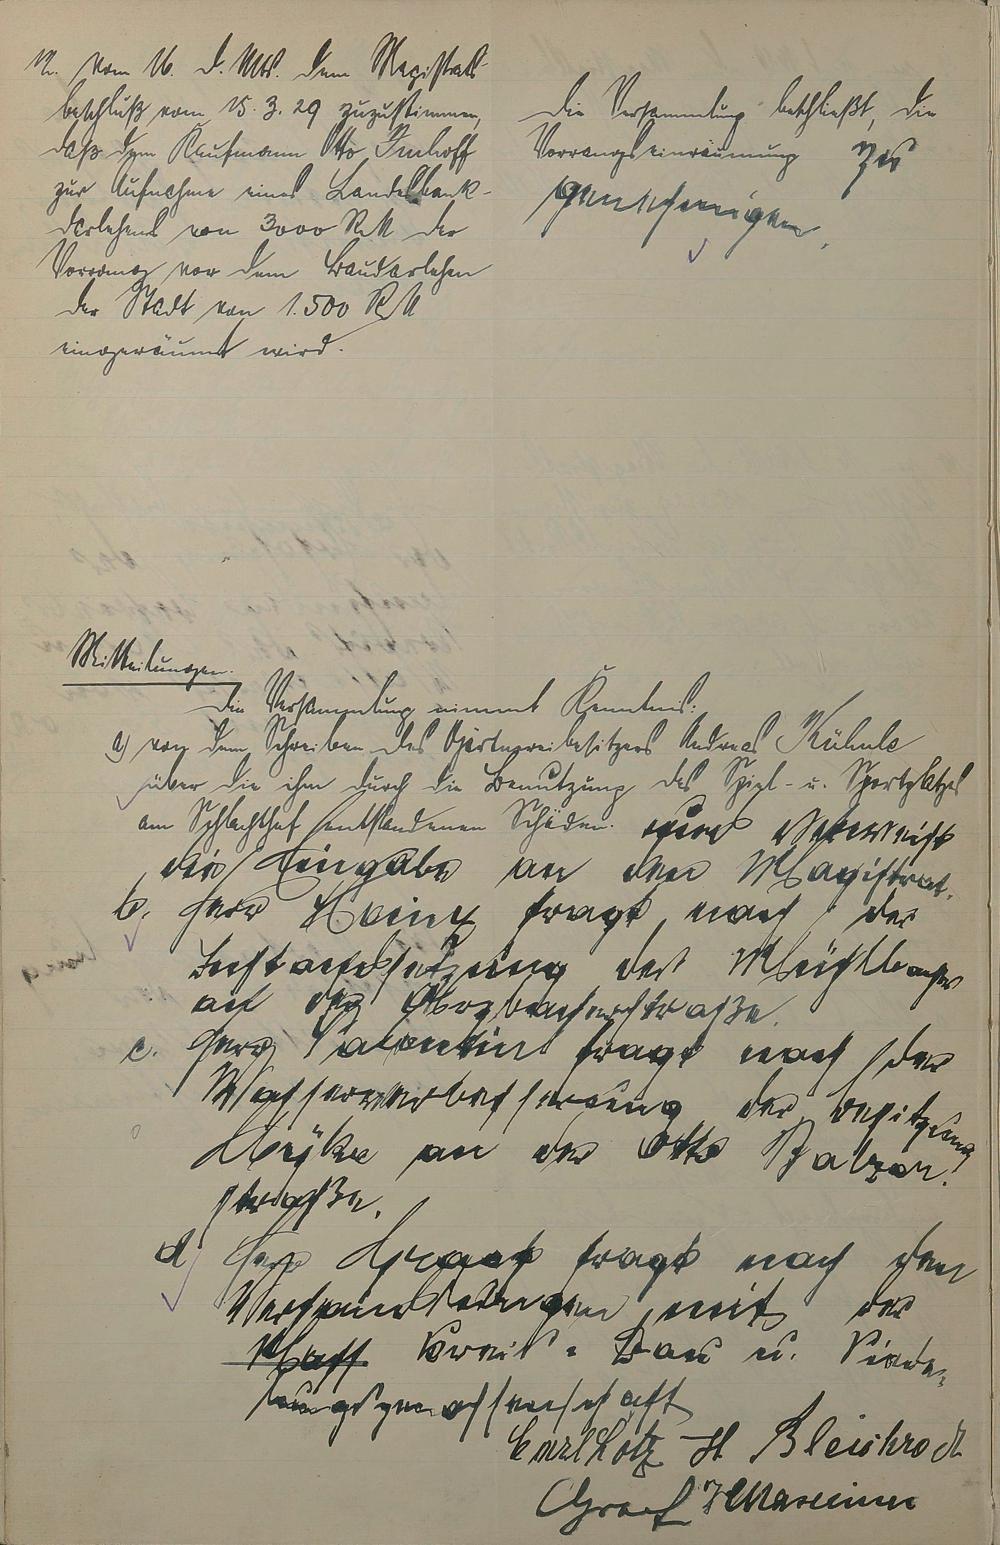 vom 16. d. Mts. dem Magistrats-
beschluß vom 15.3.29 zuzustimmen,
daß dem Kaufmann Otto Imhoff
zur Aufnahme eines Landesbank-
darlehens von 3000 RM der
Vorrang vor dem Baudarlehen
der Stadt von 1.500 RM
eingeräumt wird.
Die Versammlung beschließt, die
Vorrangseinräumung zu
genehmigen.
Mitteilungen.
Die Versammlung nimmt Kenntnis:
a) von dem Schreiben des Gärtnereibesitzers Andreas Kühnle
über die ihm durch die Benutzung des Spiel- u. Sportplatzes
am Schlachthof entstandenen Schäden. und überweist
die Eingabe an den Magistrat.
b. Herr Heinz fragt nach der
der
an der
c. Herr Valentin fragt nach der
Wasserverbesserung der Besitzung
an der Otto Balzer
straße.
d) Herr fragt nach den
Verhandlungen mit der
Kreis-Bau u. Siede-
lungsgenossenschaft
Carl Lotz H Bleichrodt
Graef